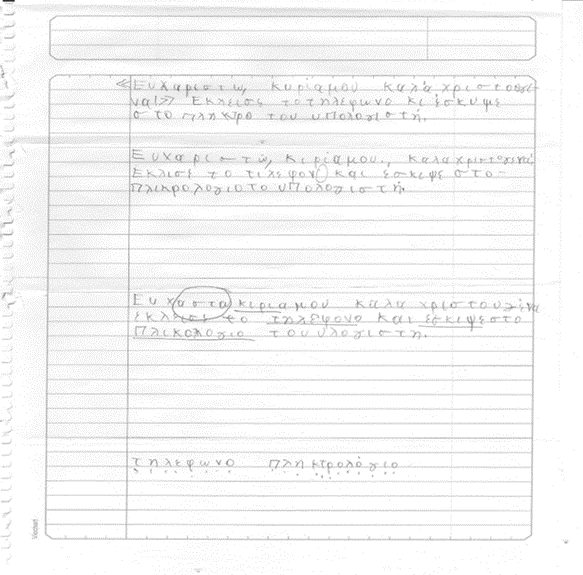 «Ευχαριστώ, κυρίαμου καλά χριστούγε-
να!» Εκλεισε τοτηλεφωνο κι έσκυψε
στο πληκρο του υπολογιστή.
Ευχαριστώ, κιρίαμου., καλαχριστογενα
Εκλισε το τιλεφονο και εσκιψε στο-
πλικρολογιοτο υπολογιστή.
Ευχαστα κιριαμου καλα χριστουγένα
εκλεισε το τηλεφονο και εσκιψεστο
Πλικολογιο τουυλογιστη.
τηλεφωνο πληκτρολόγιο
Viosert